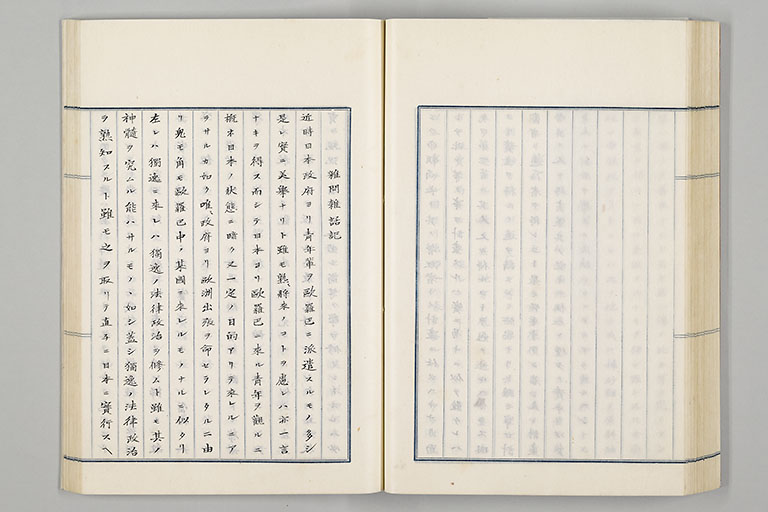 雑問雑話記
近時日本政府ヨリ青年輩ヲ歐羅巴ニ派遣スルモノ多シ
是レ實ニ美擧ナリト雖モ熟、將來ノコトヲ慮レハ亦一言
ナキヲ得ス而シテ日本ヨリ歐羅巴ニ來ル青年ヲ觀ルニ
概ネ日本ノ状態ニ暗ク又一定ノ目的アリテ來レルニア
ラサルカ如ク唯、政府ヨリ歐洲出張ヲ命セラレタルニ由
リ兎モ角モ歐羅巴中ノ某國ニ來レルモノナルニ似タリ
左レハ獨逸ニ來レハ獨逸ノ法律政治ヲ修ムト雖モ其ノ
神髓ヲ究ムル能ハサルモノヽ如シ蓋シ獨逸ノ法律政治
ヲ熟知スルト雖モ之ヲ取リテ直チニ日本ニ實行スヘ